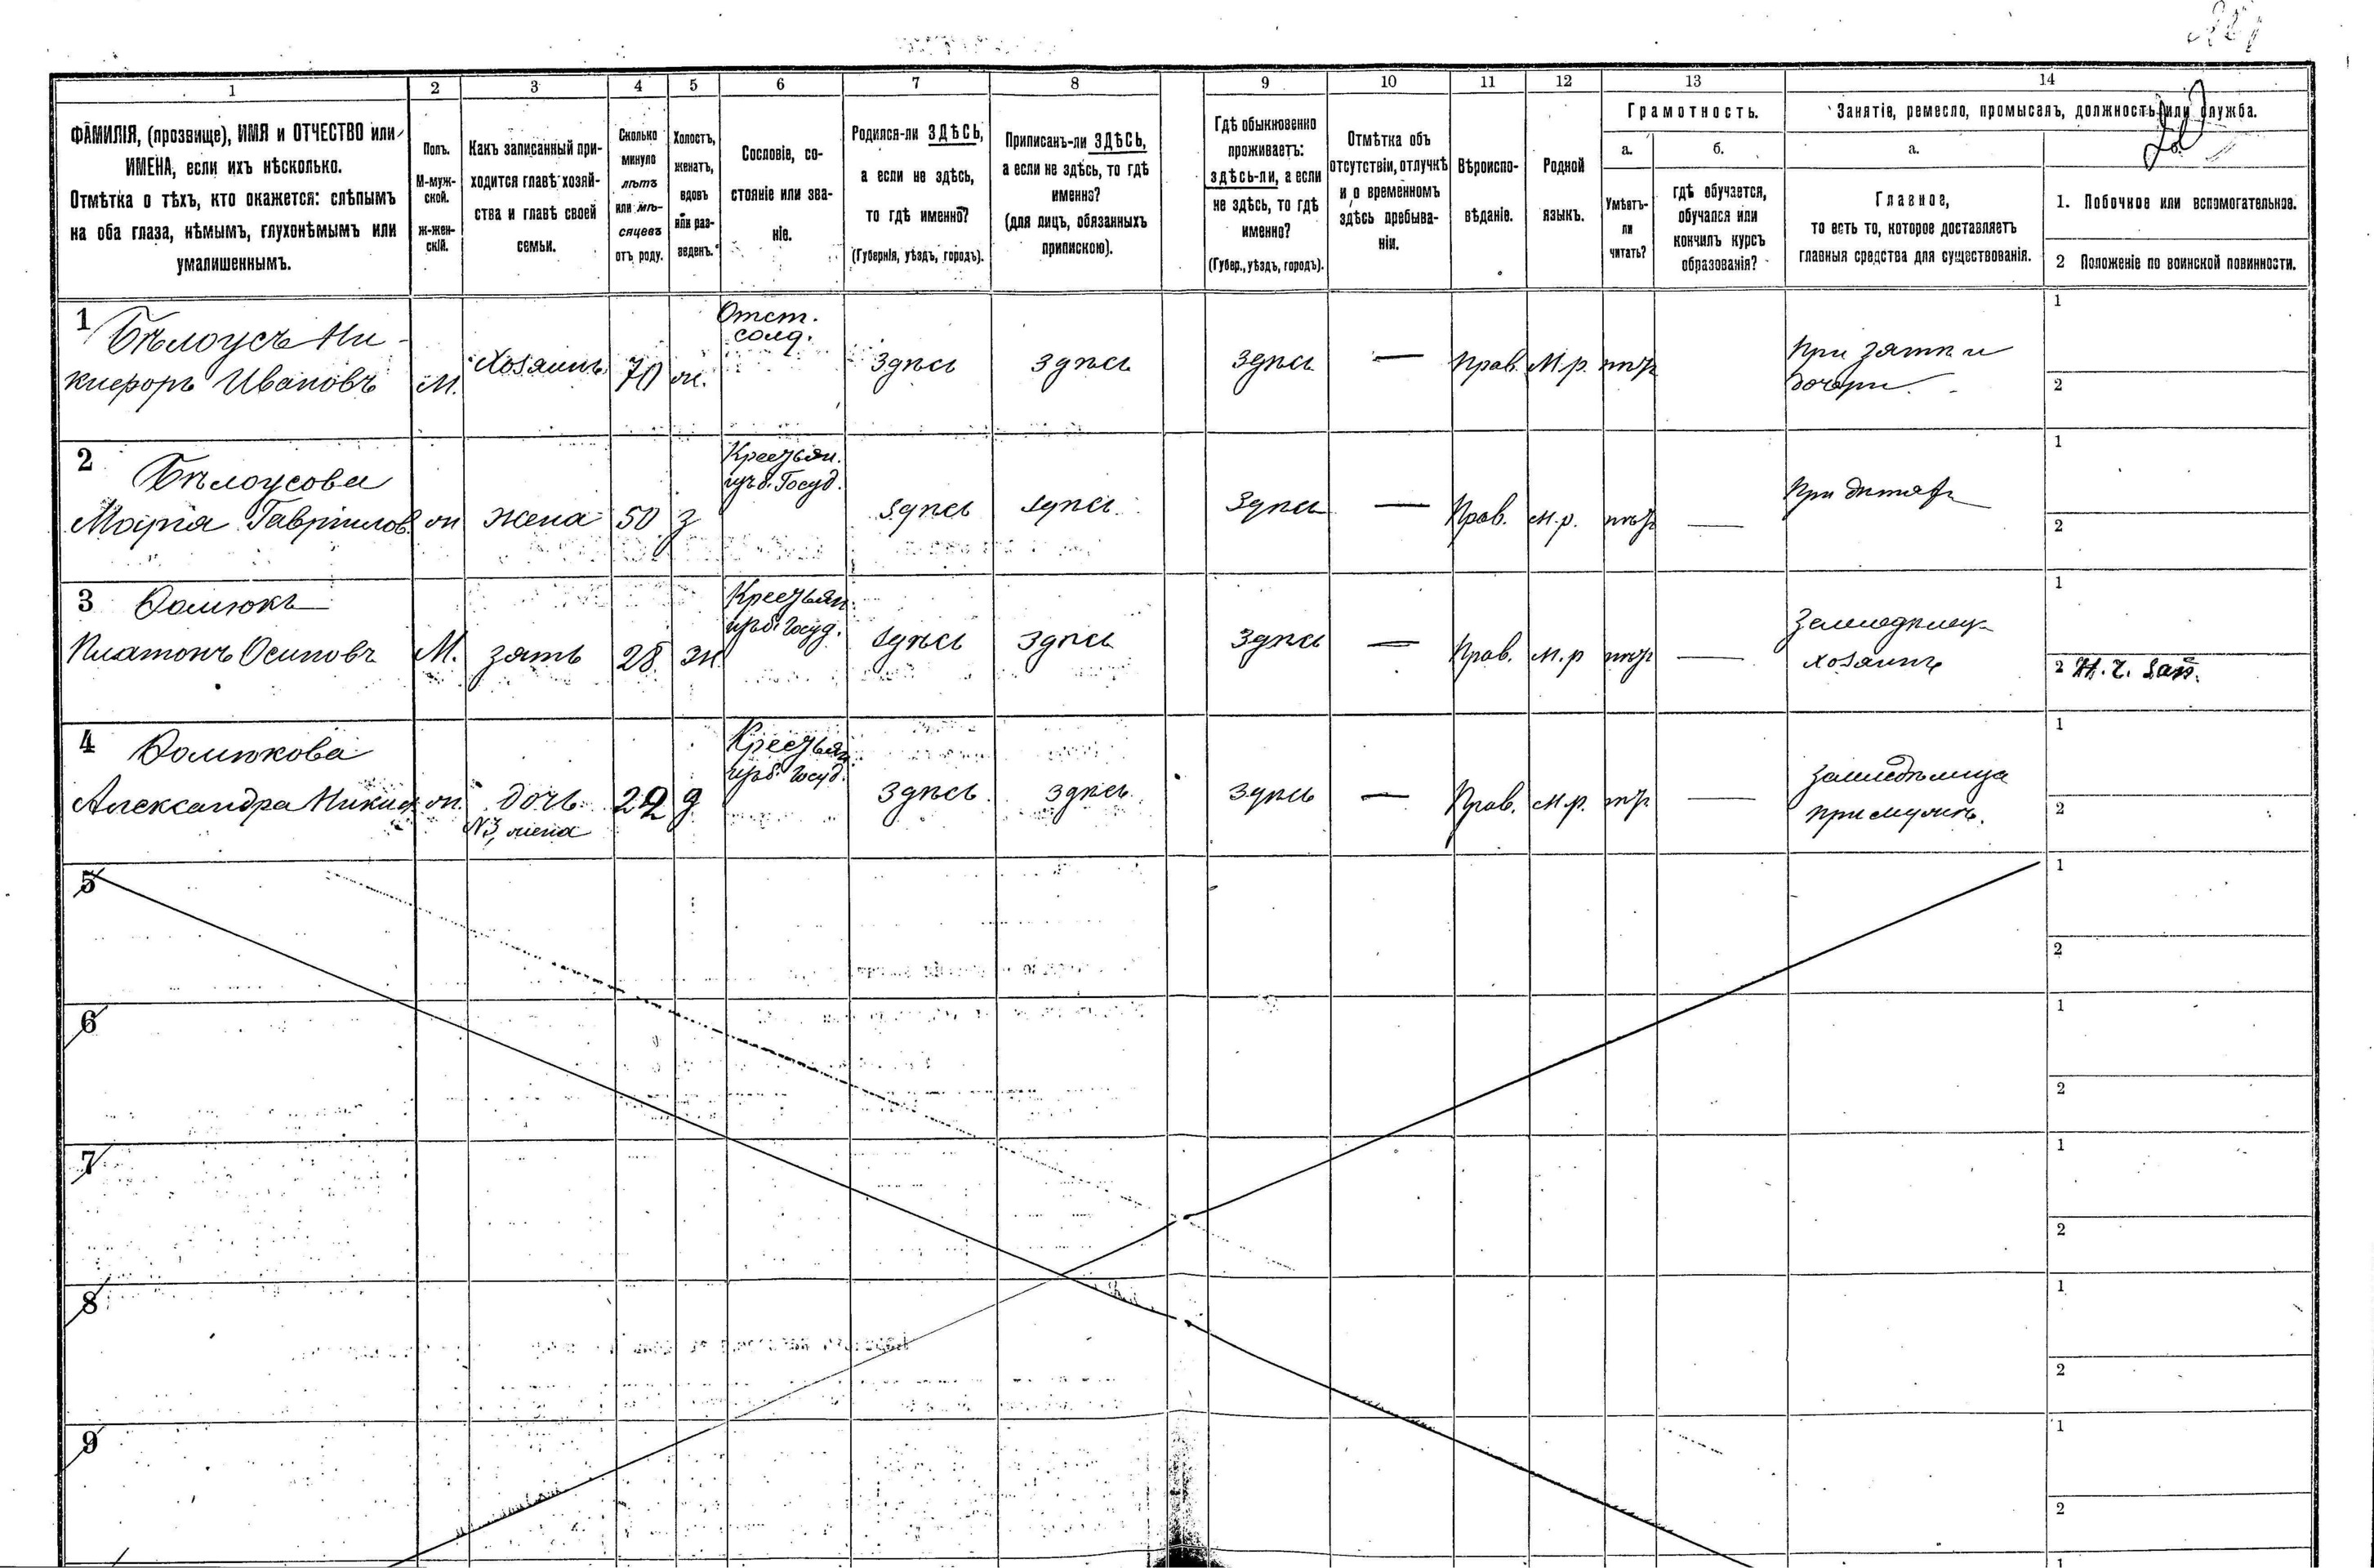 1 2 3 4 5 6 7 8 9 10 11 12 13 14
ФАМИЛІЯ, (прозвище), ИМЯ и ОТЧЕСТВО или
ИМЕНА, если ихъ нѣсколько.
Отмѣтка о тѣхъ, кто окажется: слѣпымъ
на оба глаза, нѣмымъ, глухонѣмымъ или
умалишеннымъ.
Полъ.
М-муж-
ской.
ж-жен-
скій.
Какъ записанный при-
ходится главѣ хозяй-
ства и главѣ своей
семьи.
Сколько
минуло
лѣтъ
или мѣ-
сяцевъ
отъ роду.
Холостъ,
женатъ,
вдовъ
или раз-
веденъ.
Сословіе, со-
стояніе или зва-
ніе.
Родился-ли ЗДѢСЬ,
а если не здѣсь,
то гдѣ именно?
(Губернія, уѣздъ, городъ).
Приписанъ-ли ЗДѢСЬ,
а если не здѣсь, то гдѣ
именно?
(для лицъ, обязанныхъ
припискою).
Гдѣ обыкновенно
проживаетъ:
здѣсь-ли, а если
не здѣсь, то гдѣ
именно?
(Губер., уѣздъ, городъ).
Отмѣтка объ
отсутствіи, отлучкѣ
и о временномъ
здѣсь пребыва-
ніи.
Вѣроиспо-
вѣданіе.
Родной
языкъ.
Грамотность.
а.
Умѣетъ-
ли
читать?
б.
гдѣ обучается,
обучался или
кончилъ курсъ
образованія?
Занятія, ремесло, промыселъ, должность или служба.
а.
Главное,
то есть то, которое доставляетъ
главныя средства для существованія.
1. Побочное или вспомогательное.
2 Положеніе по воинской повинности.
1 Бѣлоусъ Ни-
кифоръ Ивановъ
М.
Хозяинъ
70
ж.
Отст.
солд.
Здѣсь
здѣсь
здѣсь
—
Прав.
М.р.
нѣтъ
При зятѣ и
дочери.
1
2
2 Бѣлоусова
Марія Гавріилов.
ж
жена
50
з
Крестьян.
изъ б. Госуд.
здѣсь
здѣсь
здѣсь
—
Прав.
м.р.
нѣтъ
—
При дѣтяхъ
1
2
3 Домюкъ
Платонъ Осиповъ
М.
зять
28
ж.
Крестьян.
изъ б. Госуд.
здѣсь
здѣсь
здѣсь
—
Прав.
м.р
нѣтъ
—
Земледѣлецъ
хозяинъ
1
2 Н. Ч. Зап.
4 Домюкова
Александра Никиф
ж.
дочь
N3, жена
22
з
Крестьян
изъ б. Госуд.
Здѣсь
здѣсь
здѣсь
—
Прав.
м.р.
нѣтъ
—
Земледѣлица
при мужѣ.
1
2
5
1
2
6
1
2
7
1
2
8
1
2
9
1
2
1